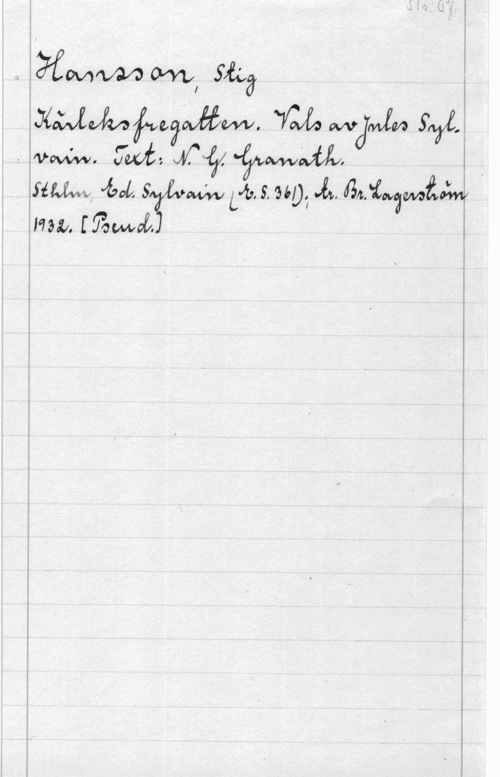 Hansson, Stig
Kärleksfregatten. Vals av Jules Syl-
vain. Text: N. G. Granath.
Sthlm, Ed. Sylvain (E. S. 361); tr. Br. Lagerström
1932. [Pseud.]